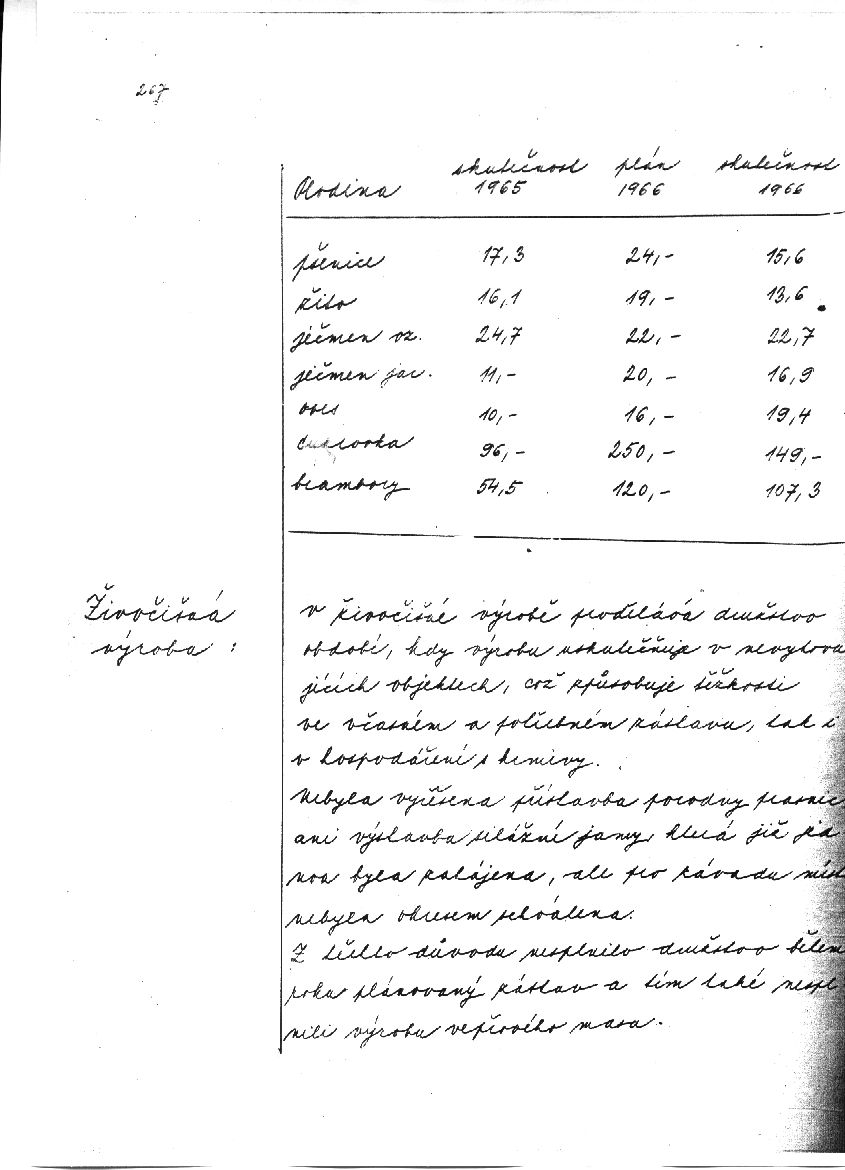 267
skutečnost plán skutečnost
Plodina 1965 1966 1966
pšenice 17,3 24,- 15,6
žito 16,1 19,- 13,6
ječmen oz. 24,7 22,- 22,7
ječmen jar. 11,- 20,- 16,9
oves 10,- 16,- 19,4
cukrovka 96,- 250,- 149,-
brambory 54,5 120,- 107,3
Živočišná
výroba :
V živočišné výrobě prodělává družstvo
období, kdy výrobu uskutečňuje v nevyhovu
jících objektech, což způsobuje těžkosti
ve včasném a potřebném zástavu, tak i
v hospodaření s krmivy.
Nebyla vyřešena přístavba porodny prasnic
ani výstavba silážní jamy, která již jed
nou byla zahájena, ale pro závadu míst
nebyla okresem schválena.
Z těchto důvodu nesplnilo družstvo během
roku plánovaný zástav a tím také nespl
nili výrobu vepřového masa.